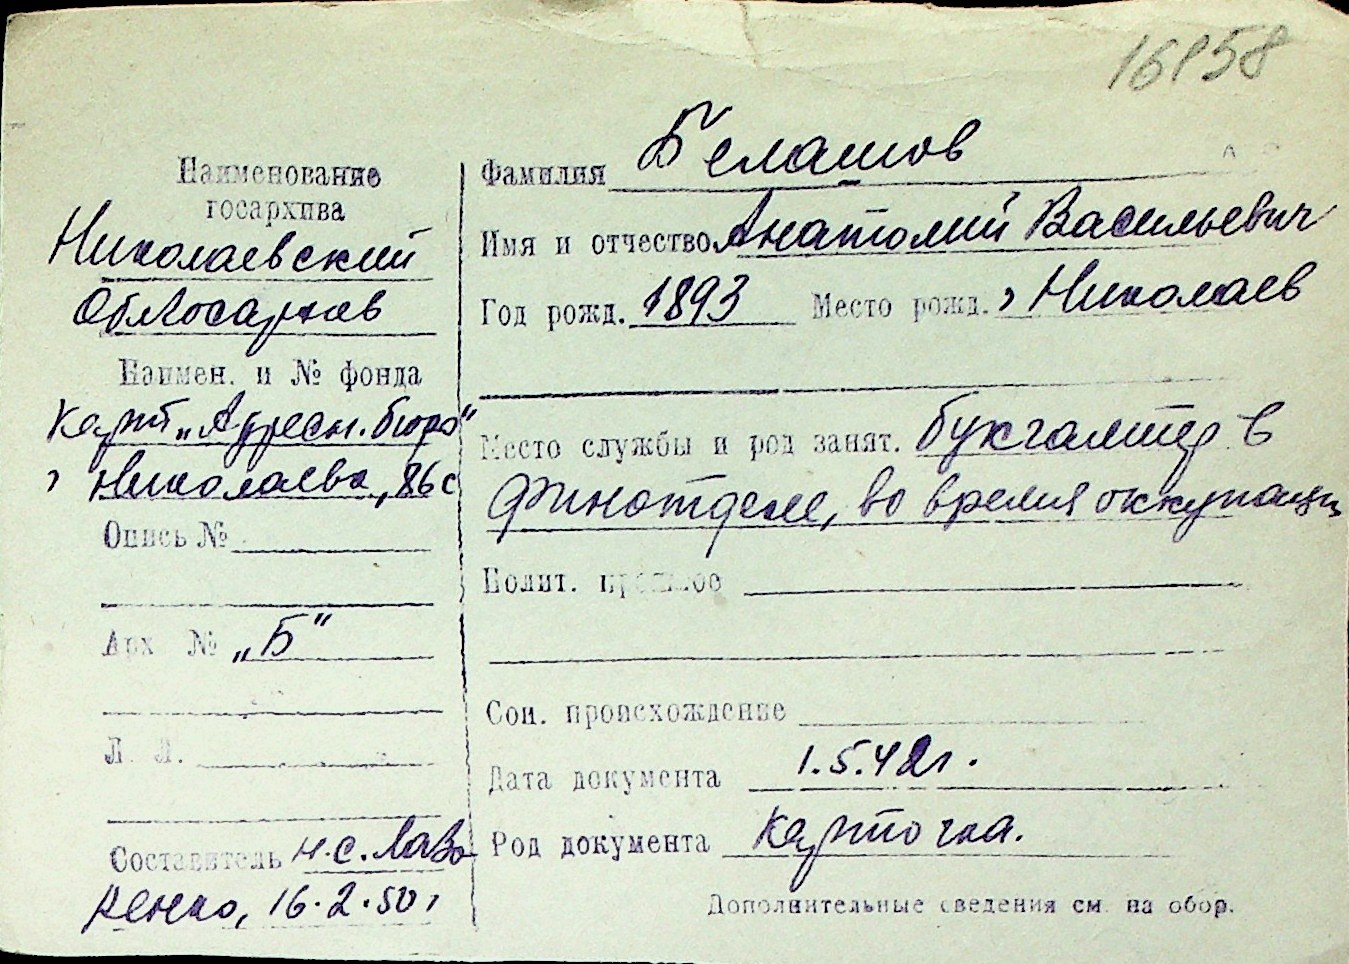 16858
Наименование
госархива
Николаевский
Облгосархив
Наимен. и № фонда
карт. „Адресн. бюро“
г Николаева, 86с
Опись №
Арх №
„Б“
Л. Л.
Составитель Н.С. Лаво
ренко, 16.2.50 г
Фамилия Белашов
Имя и отчество Анатолий Васильевич
Год рожд. 1893 Место рожд. г Николаев
Место службы и род занят. бухгалтер в
Финотделе, во время оккупации
Полит. прошлое
Соц. происхождение
Дата документа 1.5.42г.
Род документа карточка.
Дополнительные сведения см. на обор.